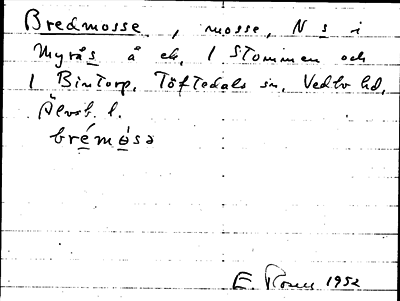 Bredmosse, mosse, N s i
Myrås å ek. 1 Stommen och
1 Bintorp, Töftedals sn, Vedbo hd,
Älvsb. l.
brémosə
E. 1952